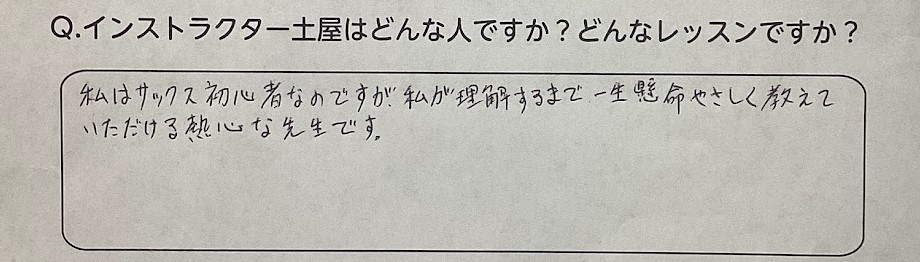 Q.インストラクター土屋はどんな人ですか？どんなレッスンですか？
私はサックス初心者なのですが、私が理解するまで一生懸命やさしく教えて
いただける熱心な先生です。